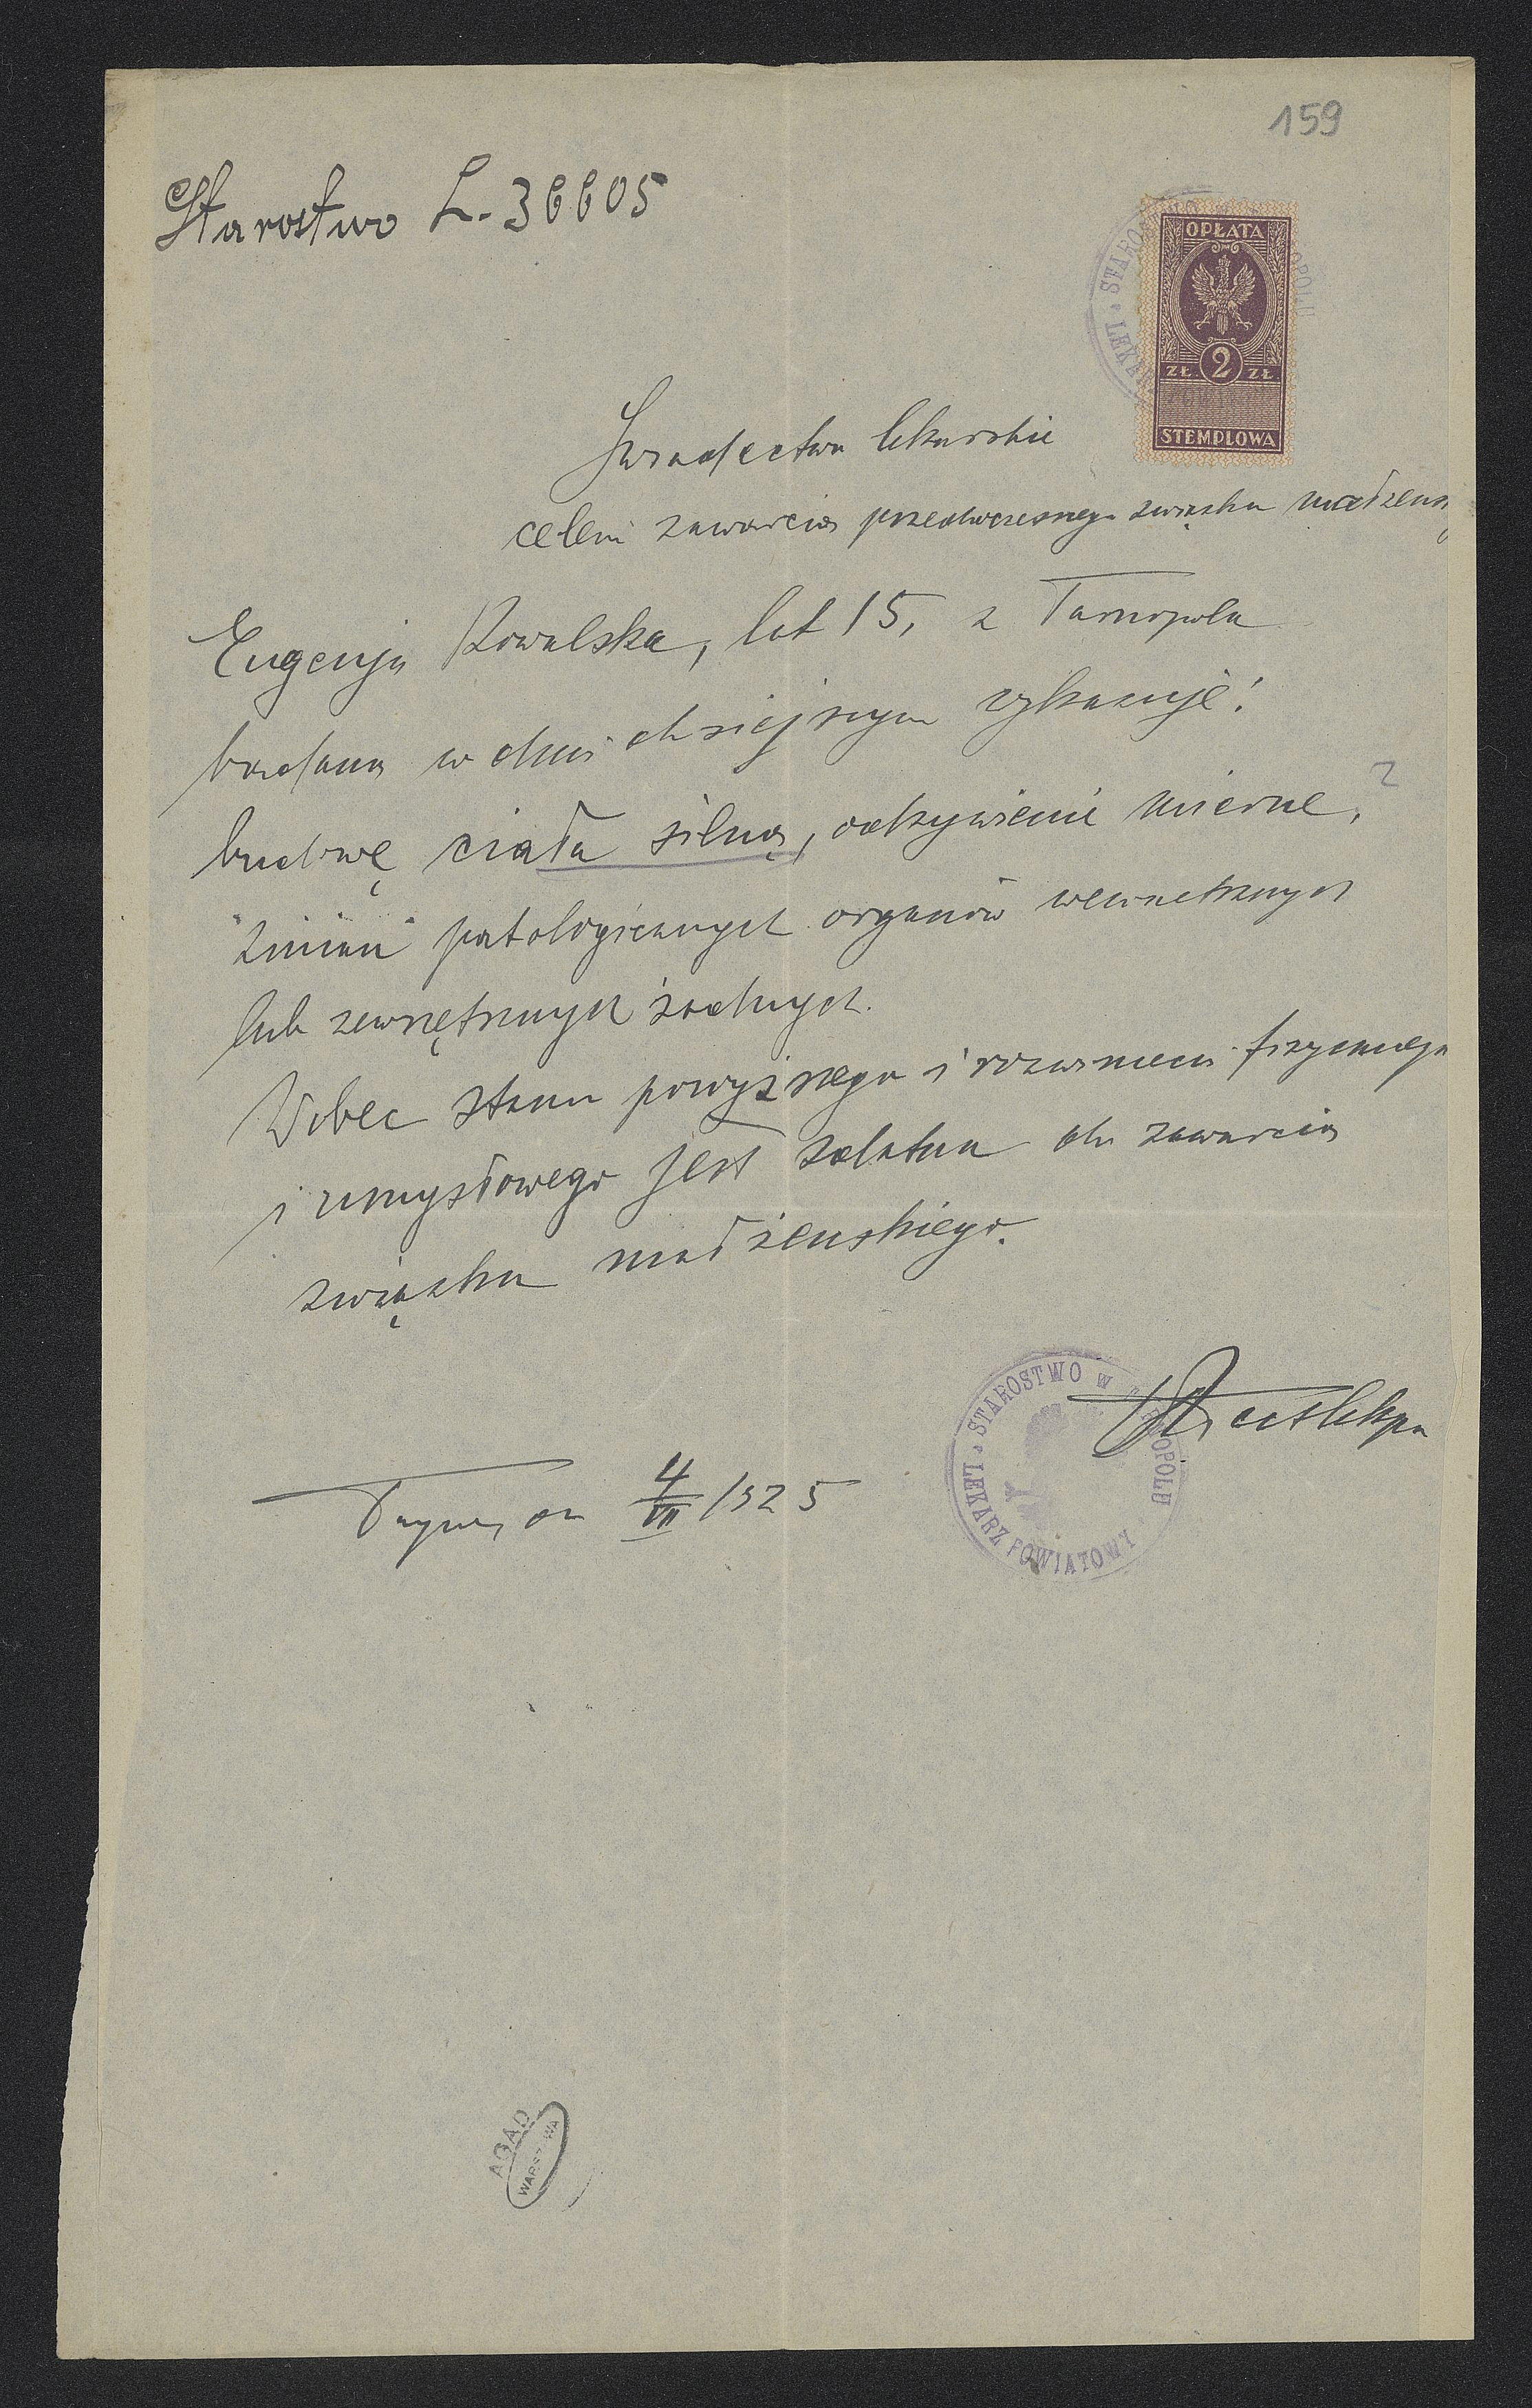 159
Starostwo L. 36605
OPŁATA
ZŁ. 2 ZŁ.
STEMPLOWA
Świadectwo lekarskie
celem zawarcia przedwczesnego związku małżeńsk
Eugenja Kowalska, lat 15, z Tarnopola
badana w dniu dzisiejszym wykazuje:
budowę ciała silną, odżywienie mierne, ?
zmian patologicznych organów wewnętrznych
lub zewnętrznych żadnych.
Wobec stanu powyższego i rozwinięcia fizycznego
i umysłowego jest zdatna do zawarcia
związku małżeńskiego.
STAROSTWO W TARNOPOLU
LEKARZ POWIATOWY
4/VII 1925
AGAD
WARSZAWA